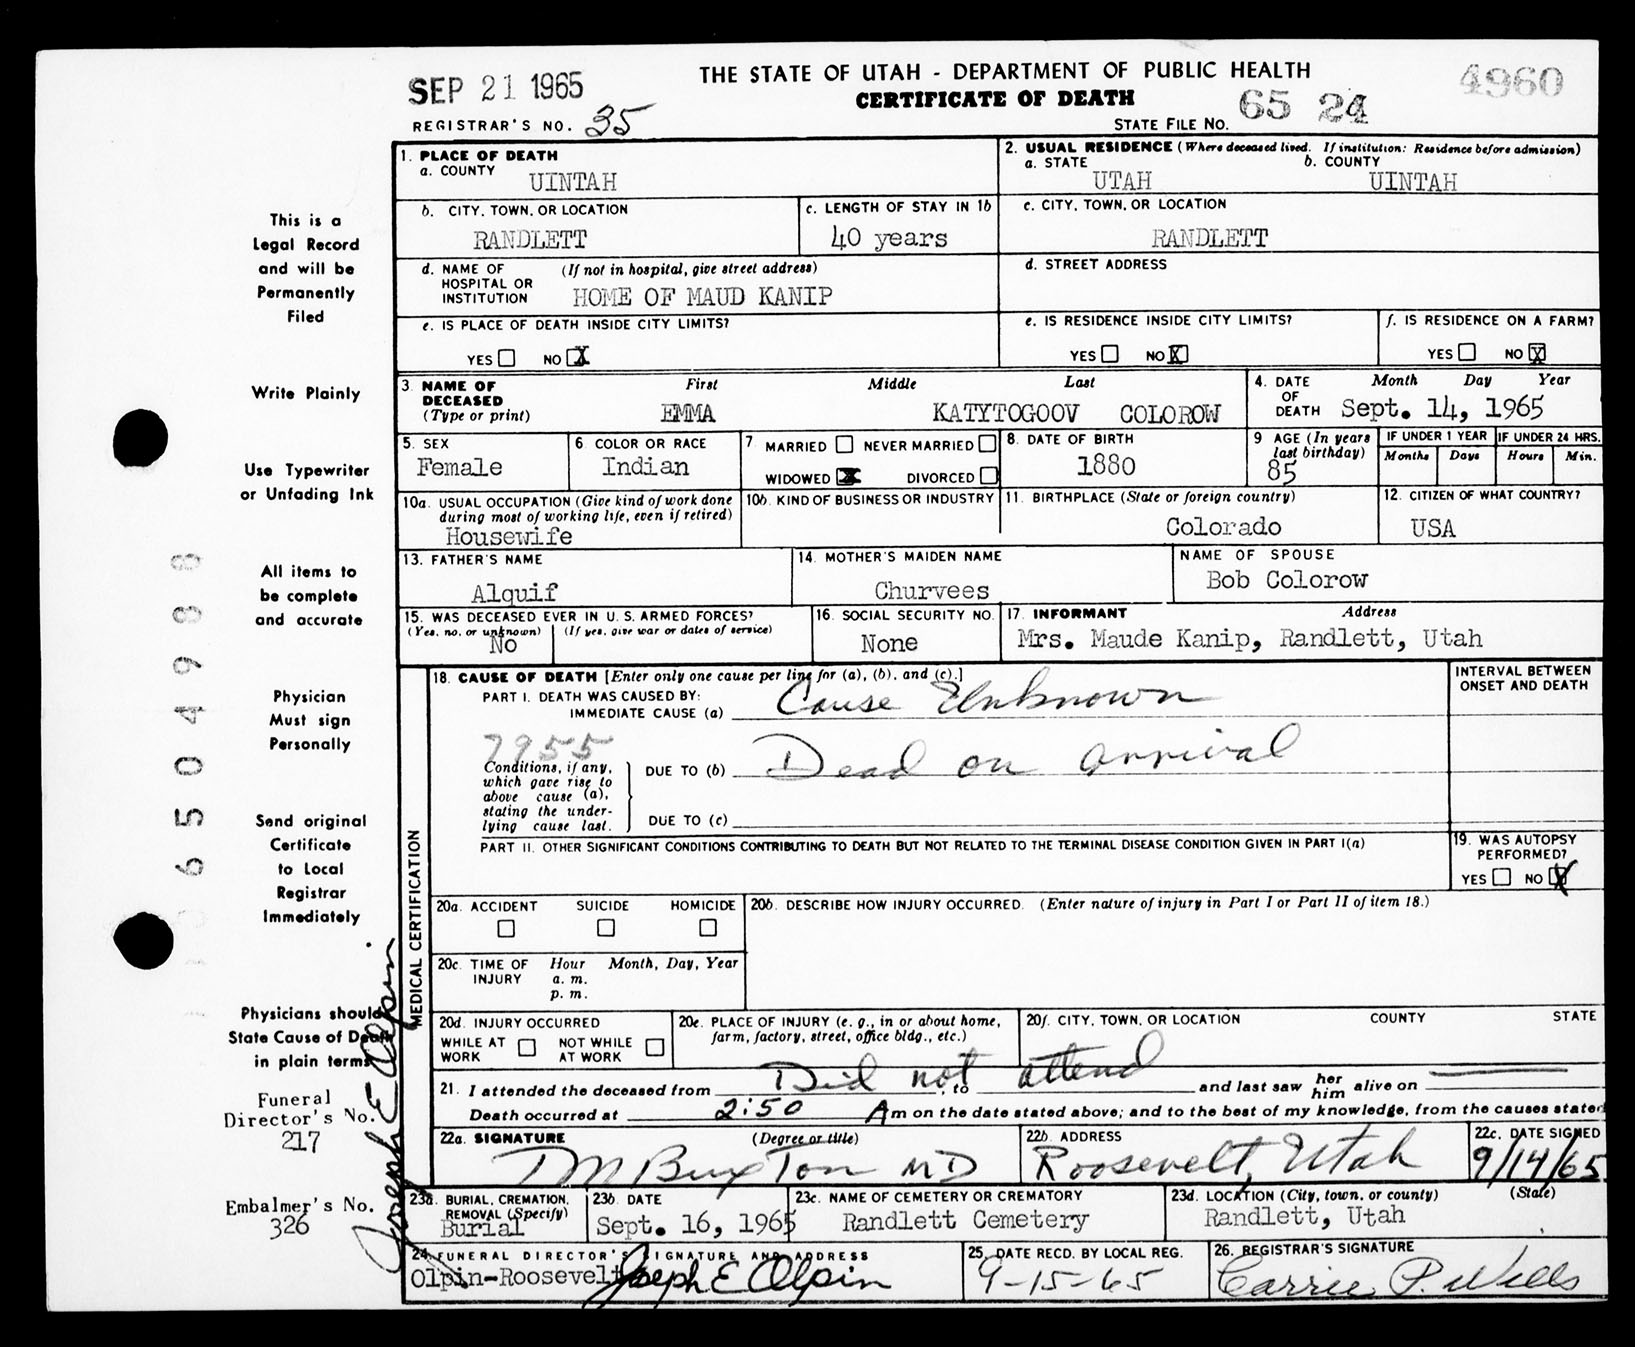 SEP 21 1965
THE STATE OF UTAH - DEPARTMENT OF PUBLIC HEALTH
4960
CERTIFICATE OF DEATH
65 24
REGISTRAR'S NO. 35
STATE FILE NO.
1. PLACE OF DEATH
a. COUNTY UINTAH
2. USUAL RESIDENCE (Where deceased lived. If institution: Residence before admission)
a. STATE UTAH b. COUNTY UINTAH
b. CITY, TOWN, OR LOCATION RANDLETT
c. LENGTH OF STAY IN 1b 40 years
c. CITY, TOWN, OR LOCATION RANDLETT
d. NAME OF HOSPITAL OR INSTITUTION (If not in hospital, give street address) HOME OF MAUD KANIP
d. STREET ADDRESS
e. IS PLACE OF DEATH INSIDE CITY LIMITS?
YES NO X
e. IS RESIDENCE INSIDE CITY LIMITS?
YES NO X
f. IS RESIDENCE ON A FARM?
YES NO X
3. NAME OF DECEASED (Type or print)
First Middle Last
EMMA KATYTOGOOV COLOROW
4. DATE OF DEATH Month Day Year
Sept. 14, 1965
5. SEX Female
6 COLOR OR RACE Indian
7 MARRIED NEVER MARRIED
WIDOWED X DIVORCED
8. DATE OF BIRTH 1880
9 AGE (In years last birthday) 85
IF UNDER 1 YEAR Months Days
IF UNDER 24 HRS. Hours Min.
10a. USUAL OCCUPATION (Give kind of work done during most of working life, even if retired)
Housewife
10b. KIND OF BUSINESS OR INDUSTRY
11. BIRTHPLACE (State or foreign country)
Colorado
12. CITIZEN OF WHAT COUNTRY?
USA
13. FATHER'S NAME
Alquif
14. MOTHER'S MAIDEN NAME
Churvees
NAME OF SPOUSE
Bob Colorow
15. WAS DECEASED EVER IN U. S. ARMED FORCES?
(Yes, no, or unknown) (If yes, give war or dates of service)
No
16. SOCIAL SECURITY NO.
None
17. INFORMANT Address
Mrs. Maude Kanip, Randlett, Utah
MEDICAL CERTIFICATION
18. CAUSE OF DEATH [Enter only one cause per line for (a), (b), and (c).]
INTERVAL BETWEEN ONSET AND DEATH
PART I. DEATH WAS CAUSED BY:
IMMEDIATE CAUSE (a) Cause Unknown
7955
Conditions, if any, which gave rise to above cause (a), stating the underlying cause last.
DUE TO (b) Dead on arrival
DUE TO (c)
PART II. OTHER SIGNIFICANT CONDITIONS CONTRIBUTING TO DEATH BUT NOT RELATED TO THE TERMINAL DISEASE CONDITION GIVEN IN PART I(a)
19. WAS AUTOPSY PERFORMED?
YES NO X
20a. ACCIDENT SUICIDE HOMICIDE
20b. DESCRIBE HOW INJURY OCCURRED. (Enter nature of injury in Part I or Part II of item 18.)
20c. TIME OF INJURY Hour Month, Day, Year
a. m.
p. m.
20d. INJURY OCCURRED
WHILE AT WORK NOT WHILE AT WORK
20e. PLACE OF INJURY (e. g., in or about home, farm, factory, street, office bldg., etc.)
20f. CITY, TOWN, OR LOCATION COUNTY STATE
21. I attended the deceased from Did not, to attend and last saw her him alive on
Death occurred at 2:50 Am on the date stated above; and to the best of my knowledge, from the causes stated
22a. SIGNATURE (Degree or title)
TM Buxton MD
22b. ADDRESS
Roosevelt, Utah
22c. DATE SIGNED
9/14/65
23a. BURIAL, CREMATION, REMOVAL (Specify)
Burial
23b. DATE
Sept. 16, 1965
23c. NAME OF CEMETERY OR CREMATORY
Randlett Cemetery
23d. LOCATION (City, town, or county) (State)
Randlett, Utah
24. FUNERAL DIRECTOR'S SIGNATURE AND ADDRESS
Olpin-Roosevelt Joseph E Olpin
25. DATE RECD. BY LOCAL REG.
9-15-65
26. REGISTRAR'S SIGNATURE
Carrie P. Wills
This is a
Legal Record
and will be
Permanently
Filed
Write Plainly
Use Typewriter
or Unfading Ink
All items to
be complete
and accurate
Physician
Must sign
Personally
Send original
Certificate
to Local
Registrar
Immediately
Physicians should
State Cause of Death
in plain terms
Funeral
Director's No.
217
Embalmer's No.
326
Joseph E Olpin
650498